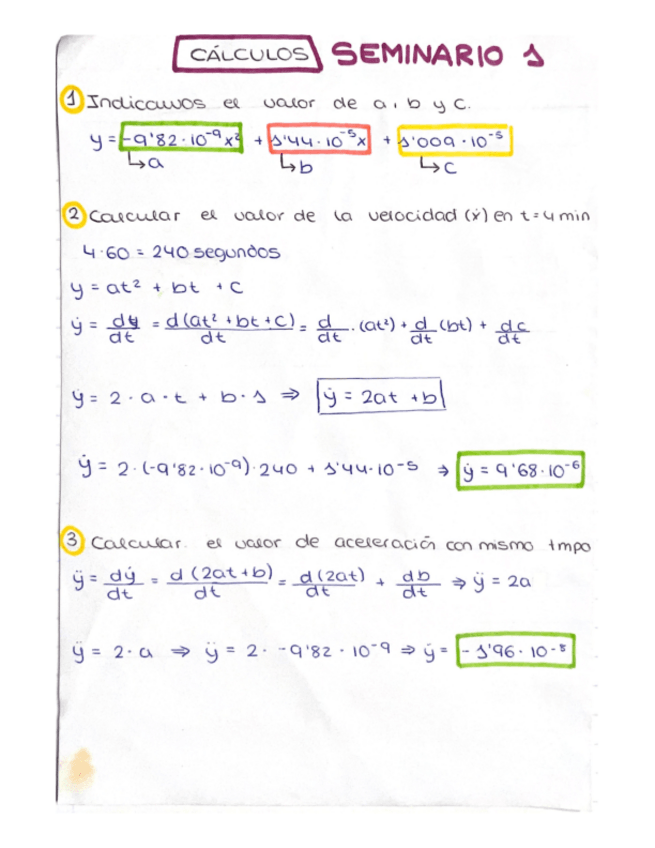 CÁLCULOS SEMINARIO 1
1 Indicamos el valor de a, b y c.
y = -9'82·10⁻⁹x² + 1'44·10⁻⁵x + 1'009·10⁻⁵
↳a ↳b ↳c
2 Calcular el valor de la velocidad (ẋ) en t=4min
4·60 = 240 segundos
y = at² + bt + c
ẏ = dy/dt = d(at² + bt + c)/dt = d/dt · (at²) + d/dt (bt) + dc/dt
ẏ = 2 · a · t + b · 1 ⇒ ẏ = 2at + b
ẏ = 2·(-9'82·10⁻⁹)·240 + 1'44·10⁻⁵ → ẏ = 9'68·10⁻⁶
3 Calcular. el valor de aceleración con mismo tmpo
ÿ = dẏ/dt = d(2at+b)/dt = d(2at)/dt + db/dt ⇒ ÿ = 2a
ÿ = 2·a ⇒ ÿ = 2· -9'82·10⁻⁹ ⇒ ÿ = -1'96·10⁻⁸